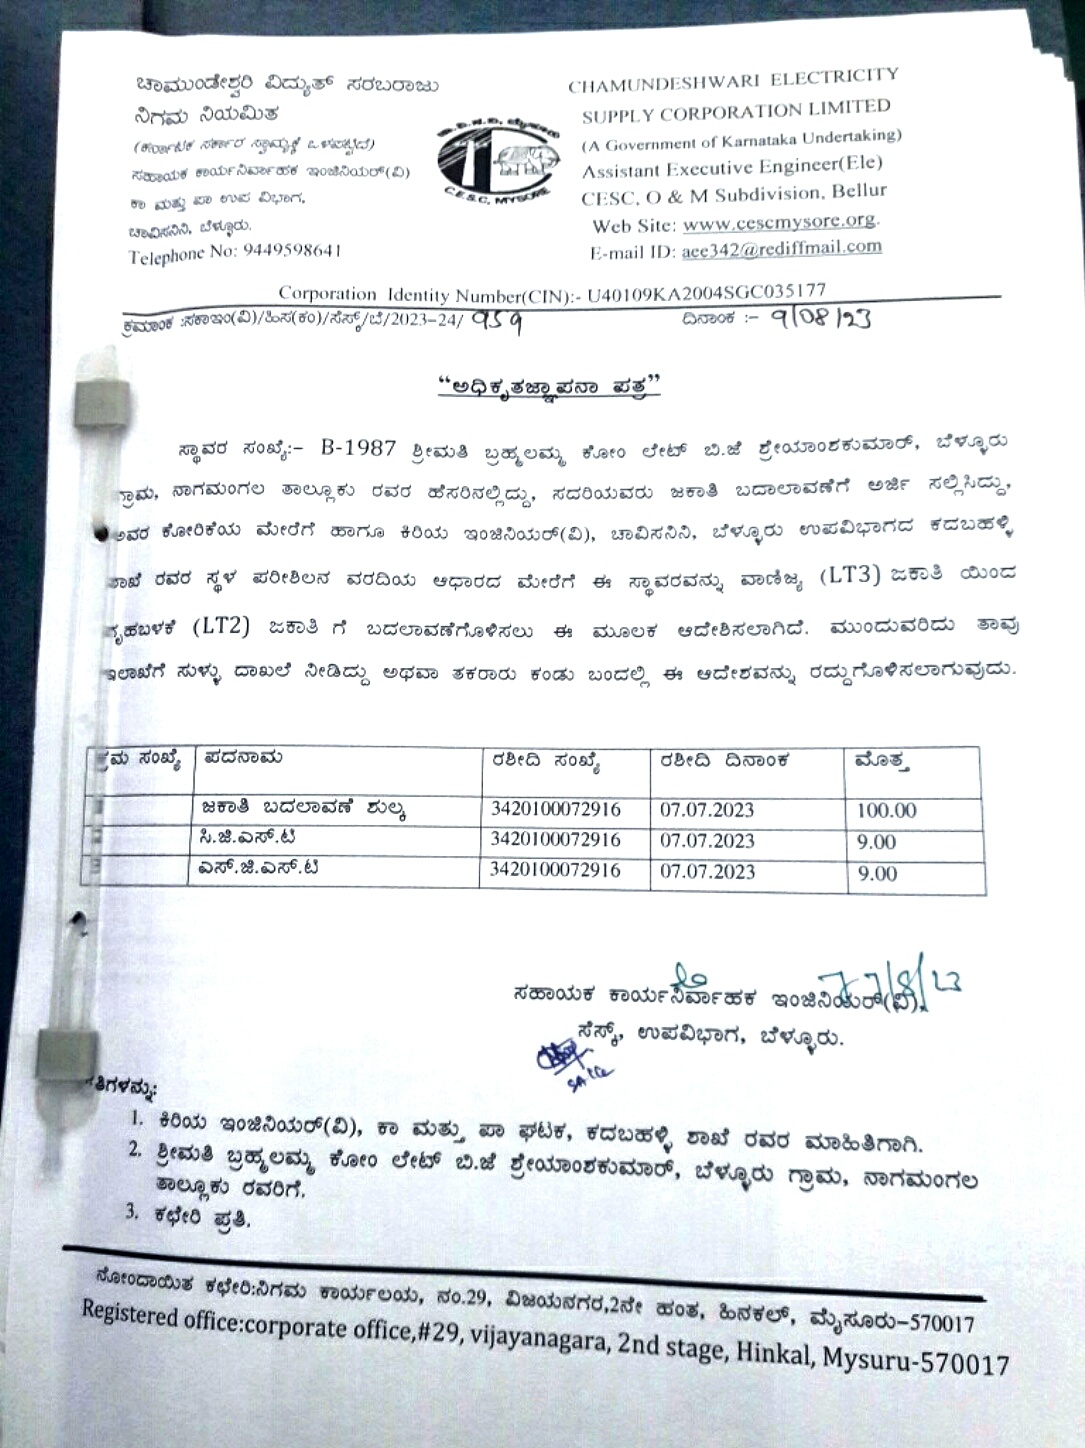 ಚಾಮುಂಡೇಶ್ವರಿ ವಿದ್ಯುತ್ ಸರಬರಾಜು
ನಿಗಮ ನಿಯಮಿತ
(ಕರ್ನಾಟಕ ಸರ್ಕಾರ ಸ್ವಾಮ್ಯಕ್ಕೆ ಒಳಪಟ್ಟಿದೆ)
ಸಹಾಯಕ ಕಾರ್ಯನಿರ್ವಾಹಕ ಇಂಜಿನಿಯರ್(ವಿ)
ಕಾ ಮತ್ತು ಪಾ ಉಪ ವಿಭಾಗ,
ಚಾವಿಸನಿನಿ, ಬೆಳ್ಳೂರು.
Telephone No: 9449598641
C.E.S.C, MYSORE
CHAMUNDESHWARI ELECTRICITY
SUPPLY CORPORATION LIMITED
(A Government of Karnataka Undertaking)
Assistant Executive Engineer(Ele)
CESC, O & M Subdivision, Bellur
Web Site: www.cescmysore.org.
E-mail ID: aee342@rediffmail.com
Corporation Identity Number(CIN):- U40109KA2004SGC035177
ಕ್ರಮಾಂಕ :ಸಕಾಇಂ(ವಿ)/ಹಿಸ(ಕಂ)/ಸೆಸ್ಕ್/ಬೆ/2023-24/ 959 ದಿನಾಂಕ :- 9/08/23
“ಅಧಿಕೃತಜ್ಞಾಪನಾ ಪತ್ರ”
ಸ್ಥಾವರ ಸಂಖ್ಯೆ:- B-1987 ಶ್ರೀಮತಿ ಬ್ರಹ್ಮಲಮ್ಮ ಕೋಂ ಲೇಟ್ ಬಿ.ಜೆ ಶ್ರೇಯಾಂಶಕುಮಾರ್, ಬೆಳ್ಳೂರು
ಗ್ರಾಮ, ನಾಗಮಂಗಲ ತಾಲ್ಲೂಕು ರವರ ಹೆಸರಿನಲ್ಲಿದ್ದು, ಸದರಿಯವರು ಜಕಾತಿ ಬದಾಲಾವಣೆಗೆ ಅರ್ಜಿ ಸಲ್ಲಿಸಿದ್ದು,
ಅವರ ಕೋರಿಕೆಯ ಮೇರೆಗೆ ಹಾಗೂ ಕಿರಿಯ ಇಂಜಿನಿಯರ್(ವಿ), ಚಾವಿಸನಿನಿ, ಬೆಳ್ಳೂರು ಉಪವಿಭಾಗದ ಕದಬಹಳ್ಳಿ
ಶಾಖೆ ರವರ ಸ್ಥಳ ಪರೀಶಿಲನ ವರದಿಯ ಆಧಾರದ ಮೇರೆಗೆ ಈ ಸ್ಥಾವರವನ್ನು ವಾಣಿಜ್ಯ (LT3) ಜಕಾತಿ ಯಿಂದ
ಗೃಹಬಳಕೆ (LT2) ಜಕಾತಿ ಗೆ ಬದಲಾವಣೆಗೊಳಿಸಲು ಈ ಮೂಲಕ ಆದೇಶಿಸಲಾಗಿದೆ. ಮುಂದುವರಿದು ತಾವು
ಇಲಾಖೆಗೆ ಸುಳ್ಳು ದಾಖಲೆ ನೀಡಿದ್ದು ಅಥವಾ ತಕರಾರು ಕಂಡು ಬಂದಲ್ಲಿ ಈ ಆದೇಶವನ್ನು ರದ್ದುಗೊಳಿಸಲಾಗುವುದು.
ಕ್ರಮ ಸಂಖ್ಯೆ ಪದನಾಮ ರಶೀದಿ ಸಂಖ್ಯೆ ರಶೀದಿ ದಿನಾಂಕ ಮೊತ್ತ
1 ಜಕಾತಿ ಬದಲಾವಣೆ ಶುಲ್ಕ 3420100072916 07.07.2023 100.00
2 ಸಿ.ಜಿ.ಎಸ್.ಟಿ 3420100072916 07.07.2023 9.00
3 ಎಸ್.ಜಿ.ಎಸ್.ಟಿ 3420100072916 07.07.2023 9.00
ಸಹಾಯಕ ಕಾರ್ಯನಿರ್ವಾಹಕ ಇಂಜಿನಿಯರ್(ವಿ),
ಸೆಸ್ಕ್, ಉಪವಿಭಾಗ, ಬೆಳ್ಳೂರು.
ಪ್ರತಿಗಳನ್ನು:
1. ಕಿರಿಯ ಇಂಜಿನಿಯರ್(ವಿ), ಕಾ ಮತ್ತು ಪಾ ಘಟಕ, ಕದಬಹಳ್ಳಿ ಶಾಖೆ ರವರ ಮಾಹಿತಿಗಾಗಿ.
2. ಶ್ರೀಮತಿ ಬ್ರಹ್ಮಲಮ್ಮ ಕೋಂ ಲೇಟ್ ಬಿ.ಜೆ ಶ್ರೇಯಾಂಶಕುಮಾರ್, ಬೆಳ್ಳೂರು ಗ್ರಾಮ, ನಾಗಮಂಗಲ
ತಾಲ್ಲೂಕು ರವರಿಗೆ.
3. ಕಛೇರಿ ಪ್ರತಿ.
ನೋಂದಾಯಿತ ಕಛೇರಿ:ನಿಗಮ ಕಾರ್ಯಲಯ, ನಂ.29, ವಿಜಯನಗರ,2ನೇ ಹಂತ, ಹಿನಕಲ್, ಮೈಸೂರು-570017
Registered office:corporate office,#29, vijayanagara, 2nd stage, Hinkal, Mysuru-570017